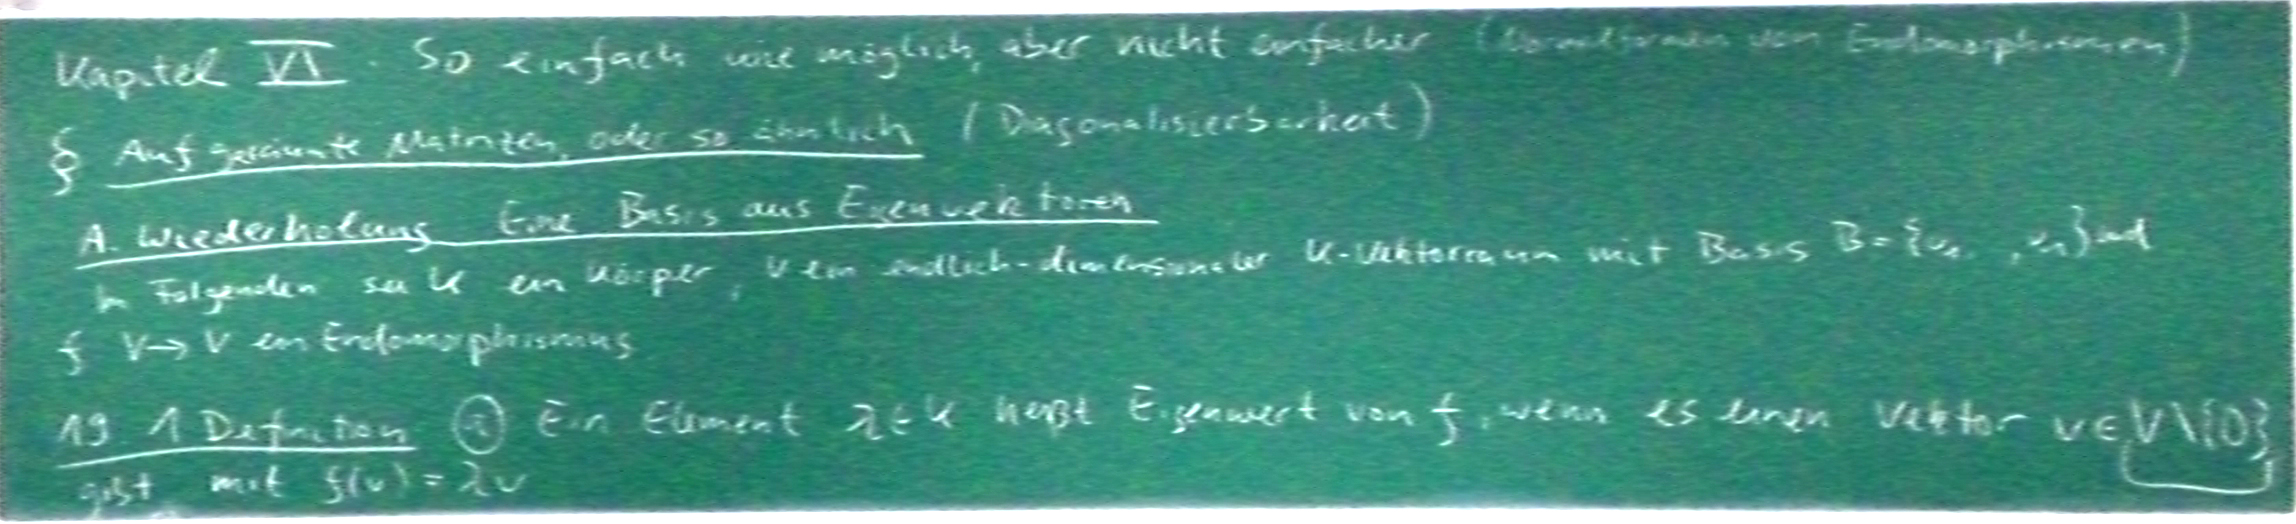 Kapitel VI. So einfach wie möglich, aber nicht einfacher (Normalformen von Endomorphismen)
§ Aufgeräumte Matrizen, oder so ähnlich (Diagonalisierbarkeit)
A. Wiederholung Eine Basis aus Eigenvektoren
Im Folgenden sei K ein Körper, V ein endlich-dimensionaler K-Vektorraum mit Basis B = {v₁, , vₙ} und
f V → V ein Endomorphismus
19 1 Definition ⓐ Ein Element λ ∈ K heißt Eigenwert von f, wenn es einen Vektor v ∈ V \ {0}
gibt mit f(v) = λv